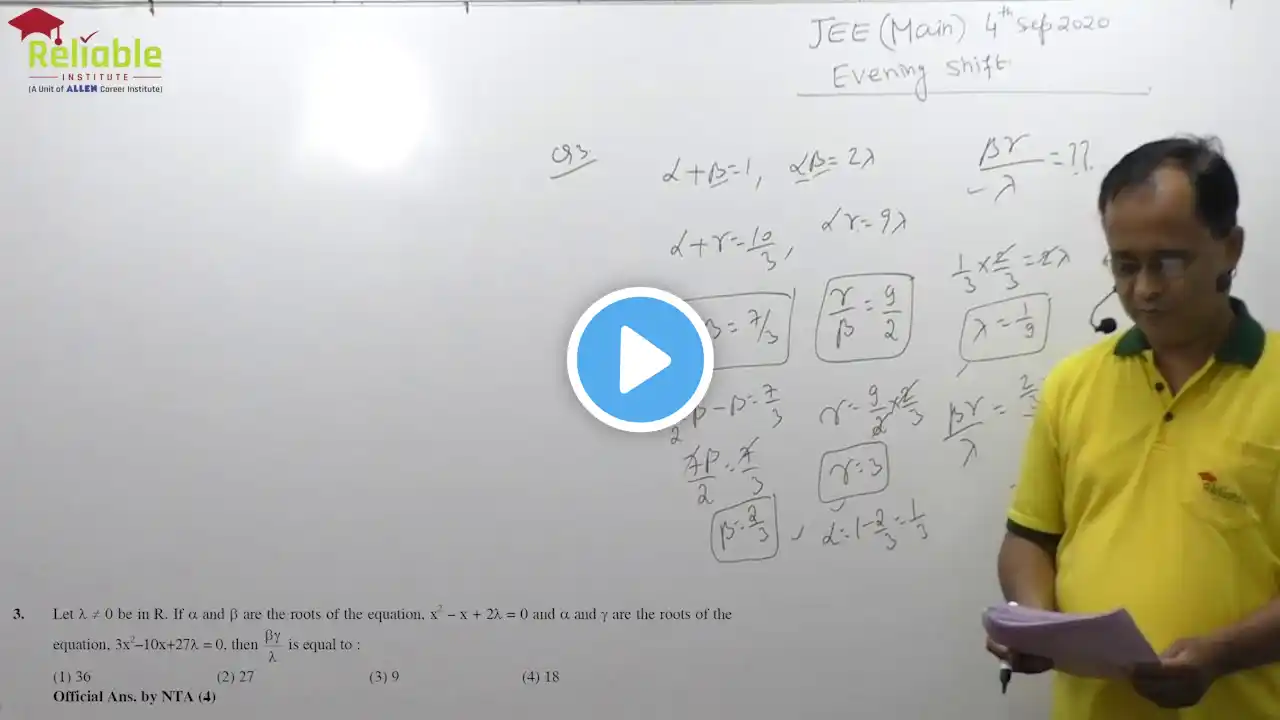 Reliable
INSTITUTE
(A Unit of ALLEN Career Institute)
JEE (Main) 4th Sep 2020
Evening Shift
Q3.
α+β=1, αβ=2λ
βγ/λ=??
α+γ=10/3, αγ=9λ
1/3×2/3=2λ
β=7/3
γ/β=9/2
λ=1/9
β-β=7/3
γ=9/2×2/3
βγ/λ=
7β/2=7/3
γ=3
β=2/3, α=1-2/3=1/3
3. Let λ ≠ 0 be in R. If α and β are the roots of the equation, x² – x + 2λ = 0 and α and γ are the roots of the
equation, 3x²–10x+27λ = 0, then βγ/λ is equal to :
(1) 36 (2) 27 (3) 9 (4) 18
Official Ans. by NTA (4)
Reliable